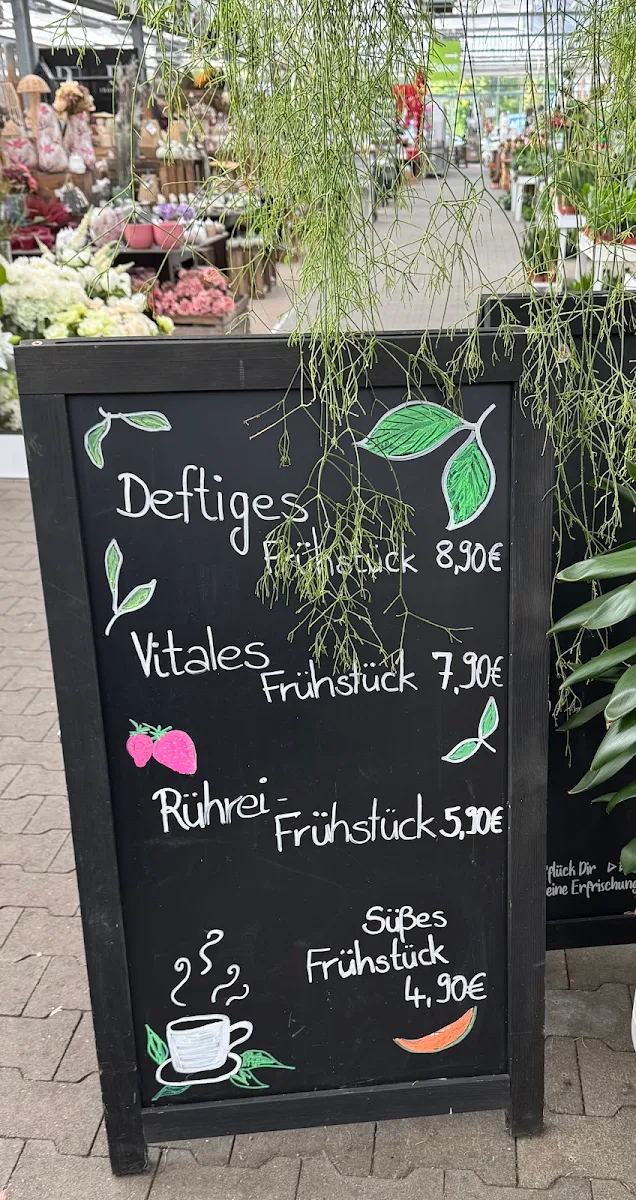 Deftiges
Frühstück 8,90€
Vitales
Frühstück 7,90€
Rührei-
Frühstück 5,90€
Süßes
Frühstück
4,90€
pflück Dir
eine Erfrischung